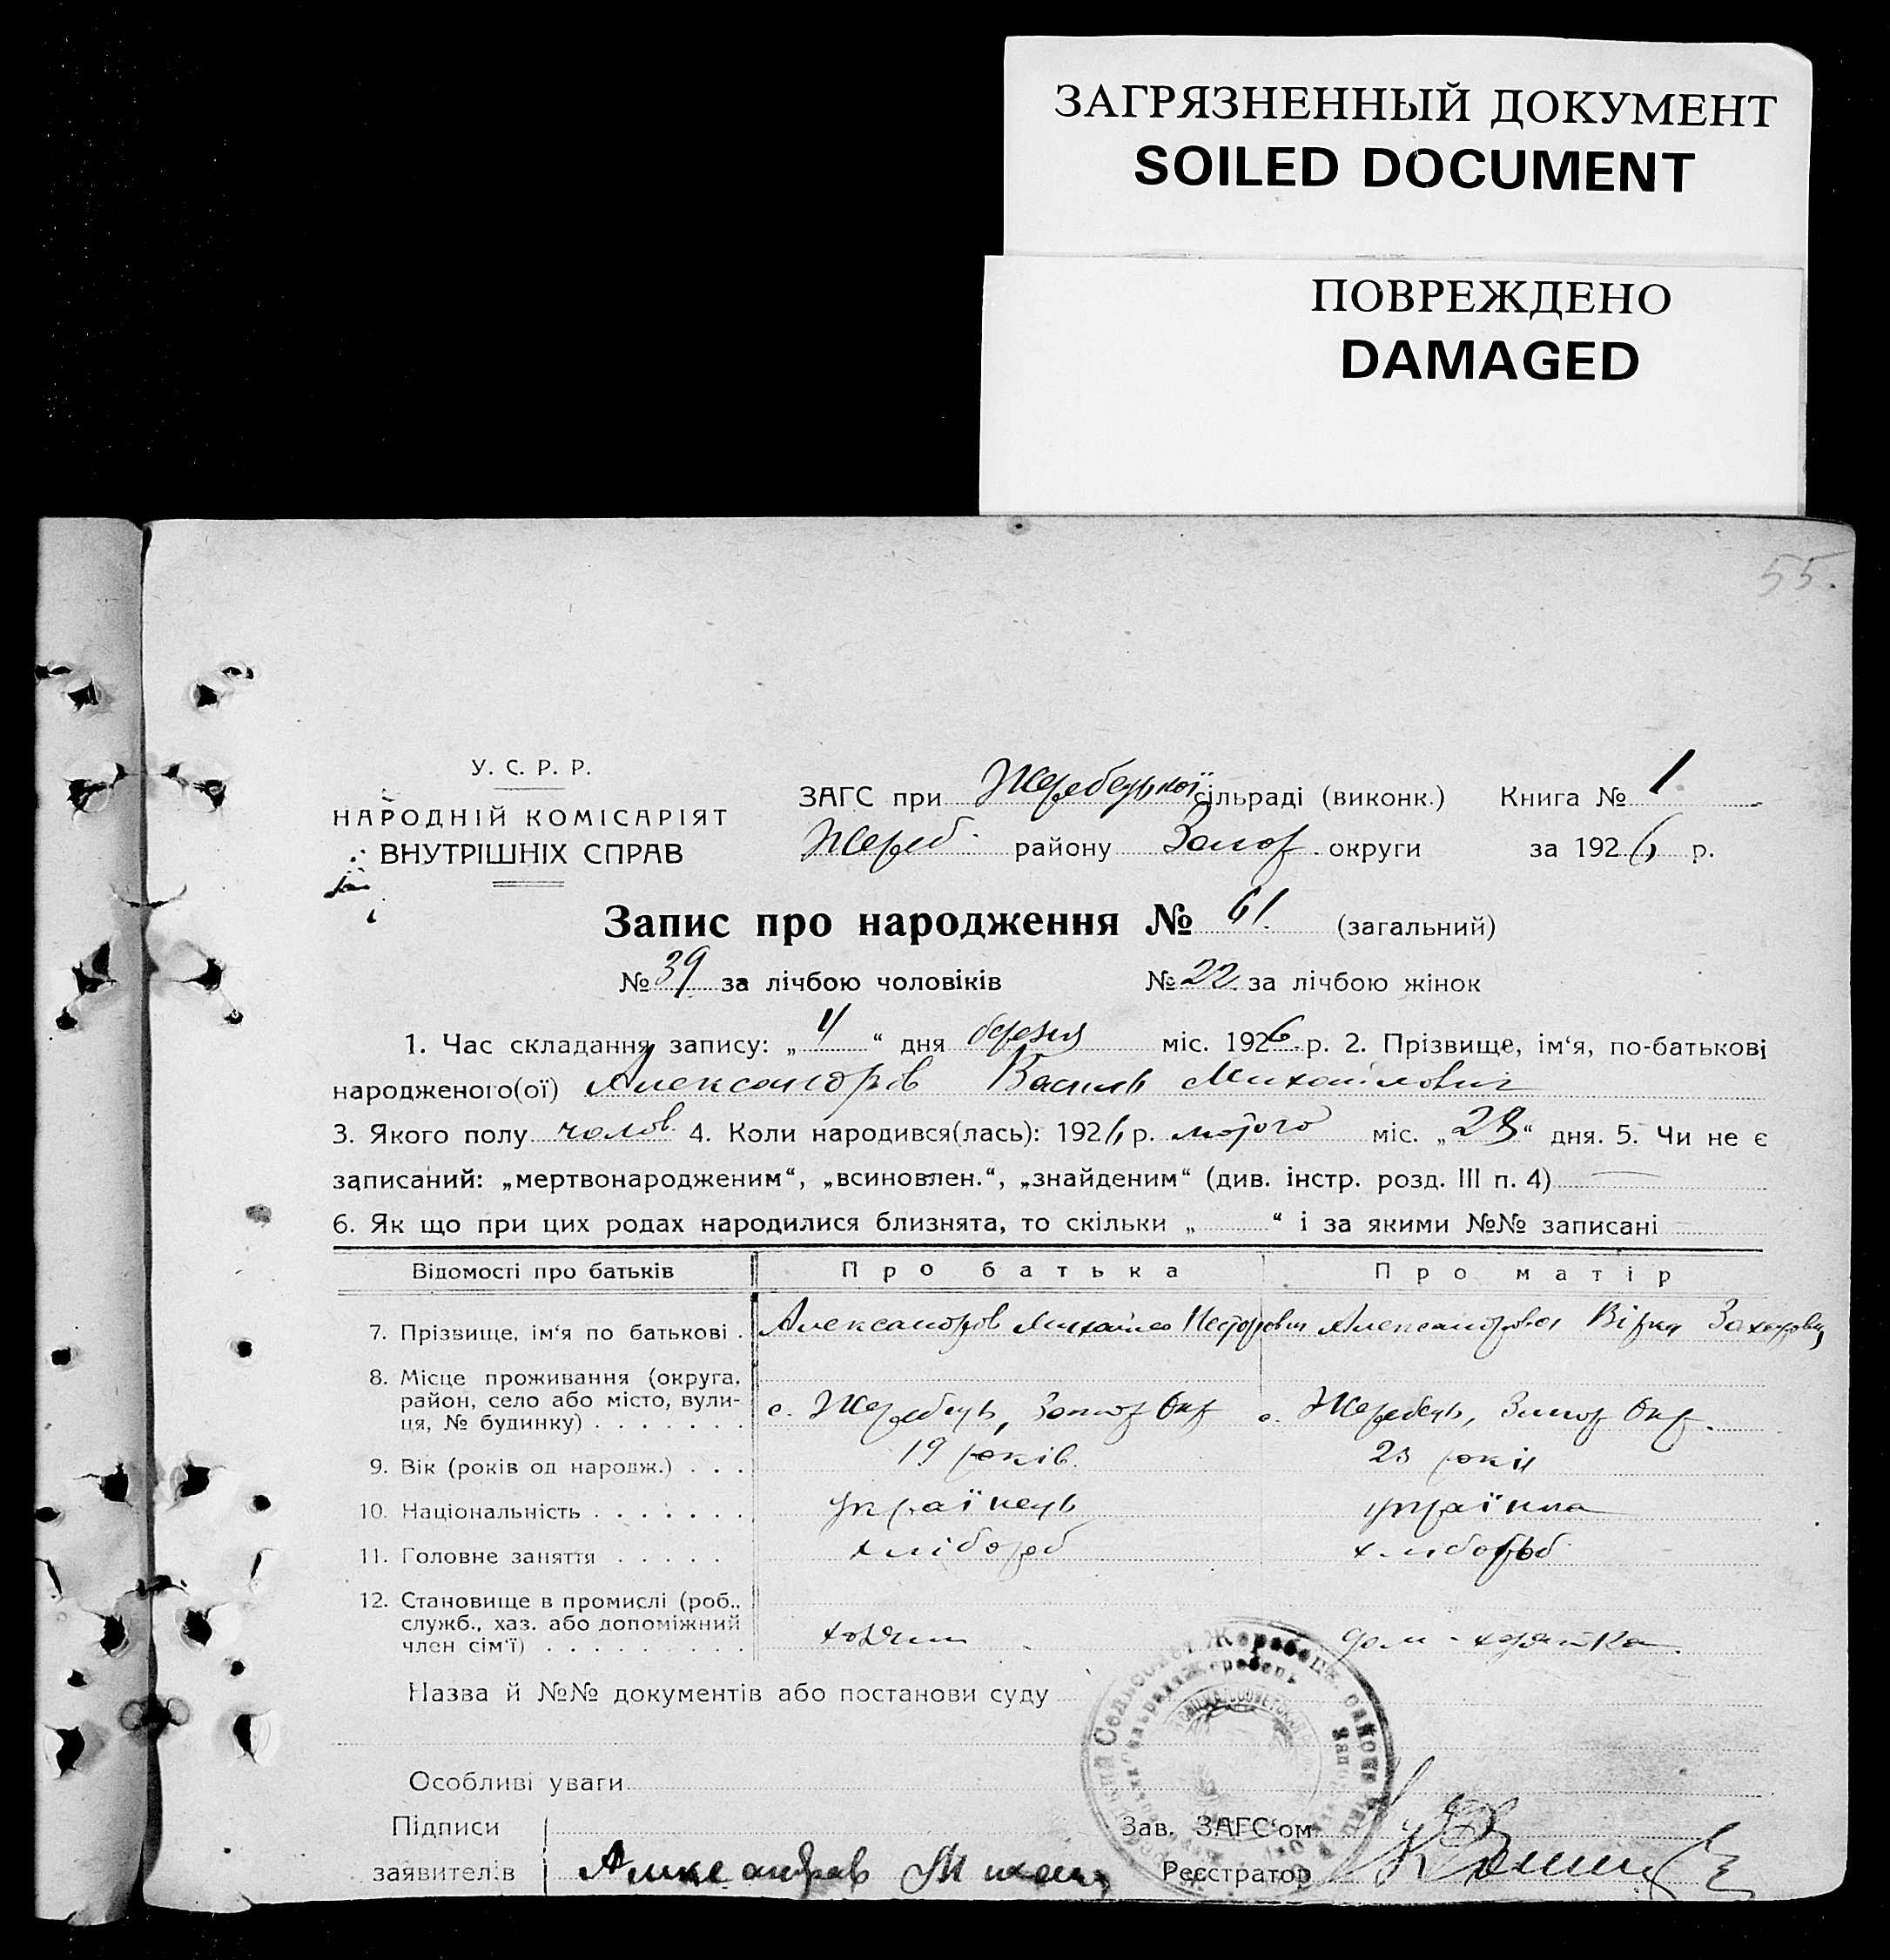 ЗАГРЯЗНЕННЫЙ ДОКУМЕНТ
SOILED DOCUMENT
ПОВРЕЖДЕНО
DAMAGED
55.
У. С. Р. Р.
НАРОДНІЙ КОМІСАРІЯТ
ВНУТРІШНІХ СПРАВ
ЗАГС при Жеребецької сільраді (виконк.) Книга № 1.
Жереб. району Запор. округи за 1926 р.
Запис про народження № 61. (загальний)
№ 39 за лічбою чоловіків № 22. за лічбою жінок
1. Час складання запису: „ 4 “ дня березня міс. 1926 р. 2. Прізвище, ім‘я, по-батькові
народженого(ої) Александрів Василь Михайлович
3. Якого полу чолов 4. Коли народився(лась): 1926 р. лютого міс. „ 28 “ дня. 5. Чи не є
записаний: „мертвонародженим“, „всиновлен.“, „знайденим“ (див. інстр. розд. III п. 4) —
6. Як що при цих родах народилися близнята, то скільки „ “ і за якими №№ записані
Відомості про батьків Про батька Про матір
7. Прізвище, ім‘я по батькові . Александрів Михайло Несторович Александрова Вірка Захаровн
8. Місце проживання (округа,
район, село або місто, вули-
ця, № будинку) . . . . . . . с. Жеребець, Запор Окр с. Жеребець, Запор Окр.
9. Вік (років од народж.) . . . 19 років. 23 роки
10. Національність . . . . . . . українець українка
11. Головне заняття . . . . . хлібороб хлібороб
12. Становище в промислі (роб.,
служб., хаз. або допоміжний
член сім‘ї) . . . . . . . . . хазяин дом-хазяйка.
Назва й №№ документів або постанови суду
Особливі уваги
Підписи Зав. ЗАГС‘ом
заявителів Александров Реєстратор